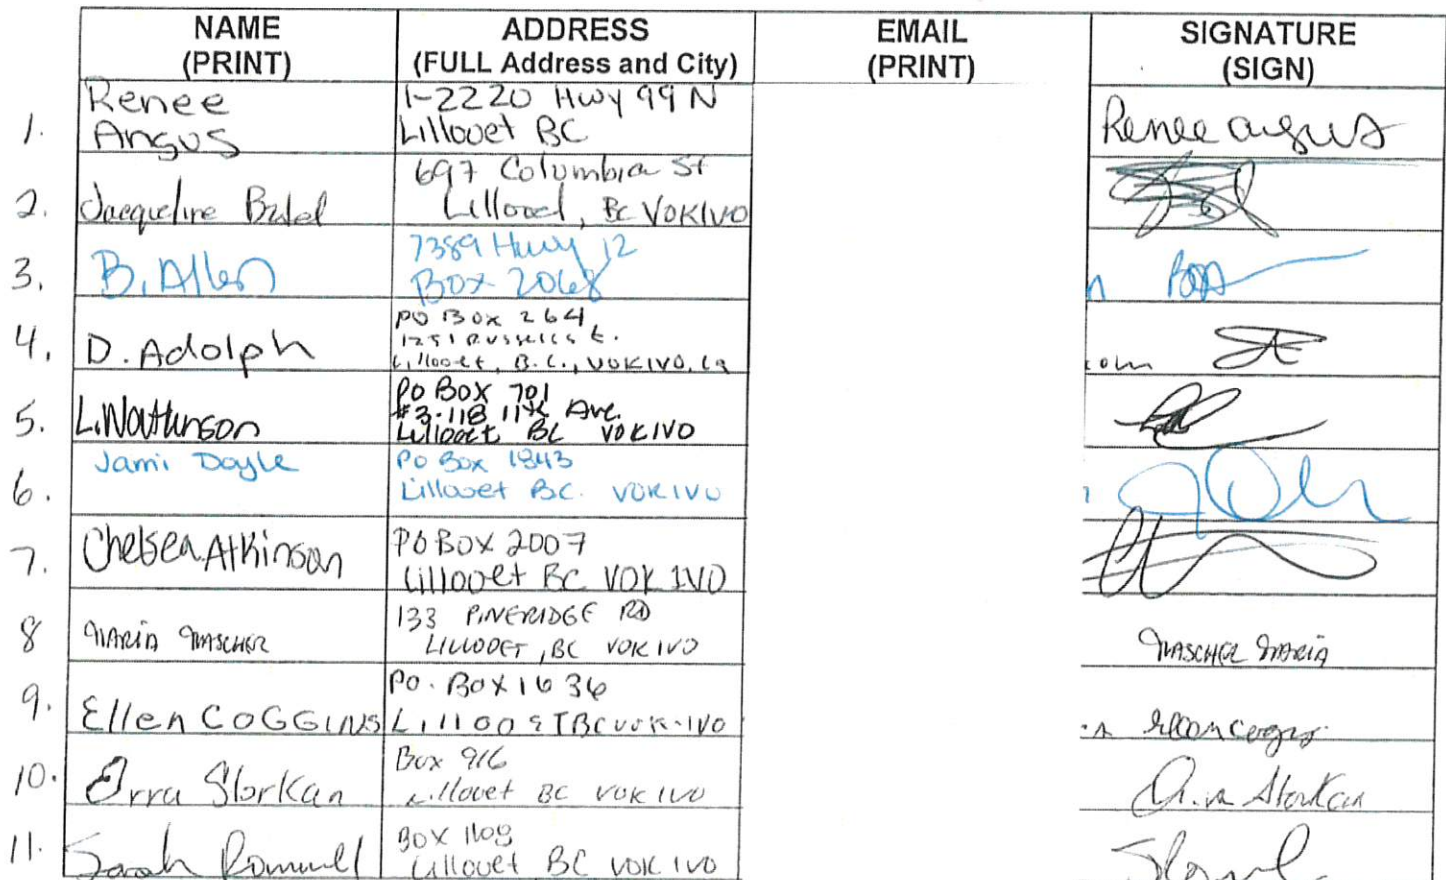 NAME ADDRESS EMAIL SIGNATURE
(PRINT) (FULL Address and City) (PRINT) (SIGN)
1. Renee 1-2220 Hwy 99 N
Angus Lillooet BC Renee angus
2. Jacqueline 697 Columbia St
Lillooet, BC V0K1V0
3. B. Allen 7389 Hwy 12
Box 2068
4. D. Adolph PO Box 264
1251 Russell St.
Lillooet, B.C., V0K1V0, Ca com
5. L. Watkinson PO Box 701
#3-118 11th Ave.
Lillooet BC V0K1V0
6. Jami Doyle PO Box 1843
Lillooet BC. V0K1V0
7. Chelsea Atkinson PO Box 2007
Lillooet BC V0K 1V0
8 MARIA MASCHER 133 PINERIDGE RD
LILLOOET, BC V0K1V0 MASCHER MARIA
9. Ellen COGGINS PO. Box 1636
LillooET BC V0K-1V0 Ellen Coggins
10. Storkan Box 916
Lillooet BC V0K 1V0 Storkan
11. Sarah Box 1108
Lillooet BC V0K 1V0